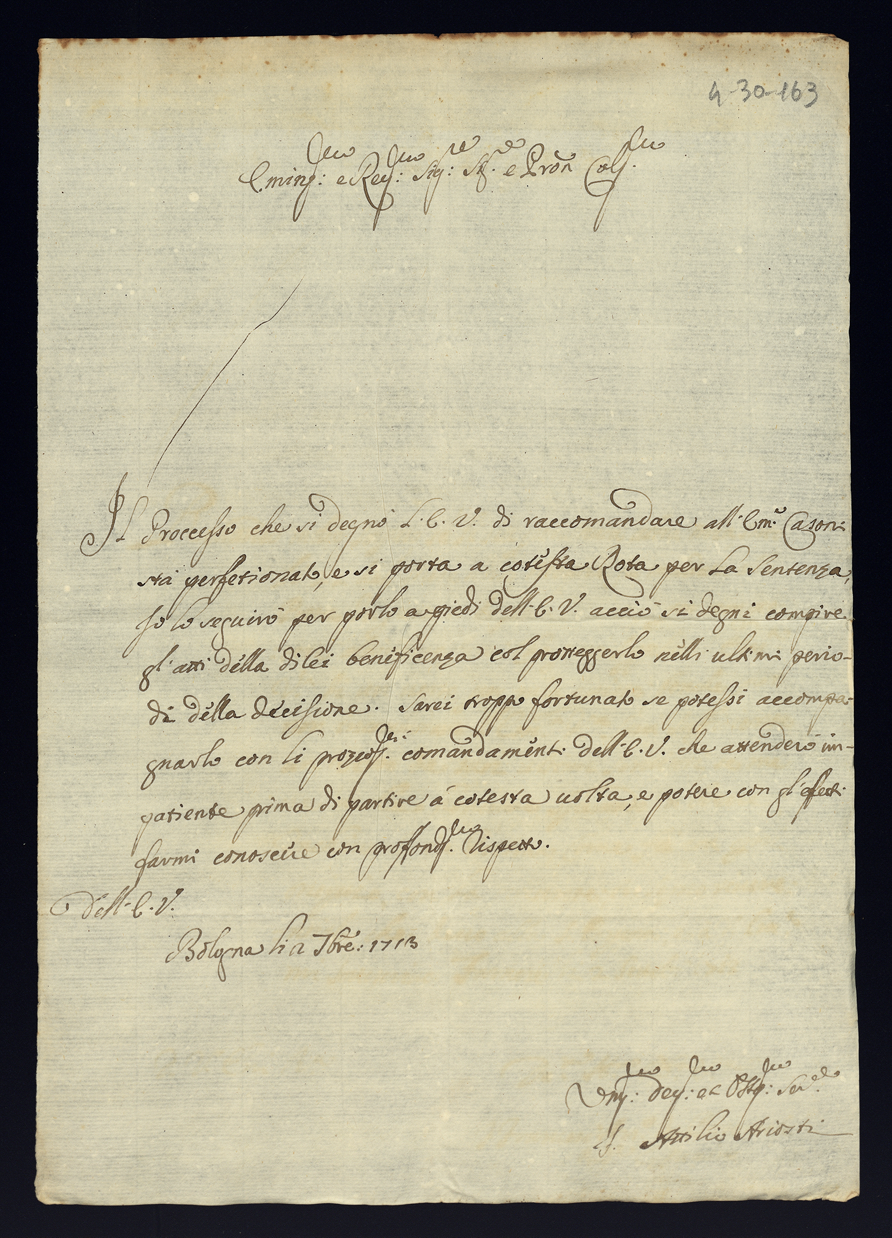 4-30-163
Eming:mo e Reg:mo Sig:re Sig.re e Pron Col.mo
Il Proccesso che si degnò L'E. V. di raccomandare all'Em.o Casoni
stà perfetionato, e si porta a cotesta Rota per La Sentenza,
Io lo seguirò per porlo a piedi dell'E. V. acciò si degni compire
gl'atti della di lei beneficenza col proteggerlo nelli ultimi perio-
di della decisione. Sarei troppo fortunato se potessi accompa-
gnarlo con li comandamenti dell'E. V. che attenderò im-
patiente prima di partire à cotesta uolta, e potere con gl'effetti
farmi conoscere con profond.mo Rispetto.
Dell'E. V.
Bologna li 2 7bre: 1713
Um:mo Deu:mo et Obbg:mo Ser.re
f. Attilio Ariosti